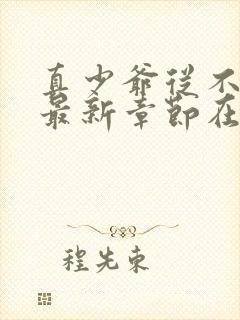 真少爷从不
最新章节在
程先束